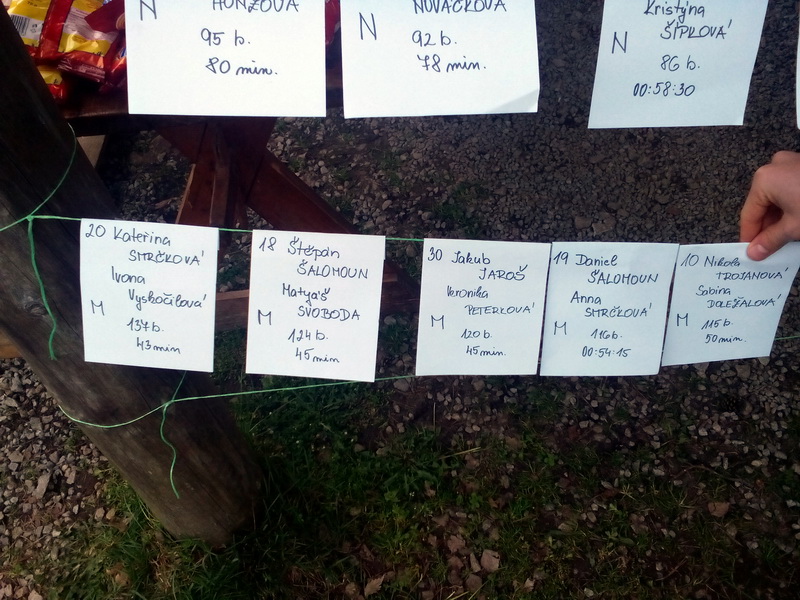 N
HONZOVÁ
95 b.
80 min.
N
NOVÁČKOVÁ
92 b.
78 min.
Kristýna
N
ŠÍPKOVÁ
86 b.
00:58:30
20 Kateřina
SMRČKOVÁ
Ivona
Vyskočilová
M
137 b.
43 min
18 Štěpán
ŠALOMOUN
Matyáš
M
SVOBODA
124 b.
45 min.
30 Jakub
JAROŠ
Veronika
PETERKOVÁ
M
120 b.
45 min.
19 Daniel
ŠALOMOUN
Anna
SMRČKOVÁ
M
116 b.
00:54:15
10 Nikola
TROJANOVÁ
Sabina
DOLEŽALOVÁ
M
115 b.
50 min.